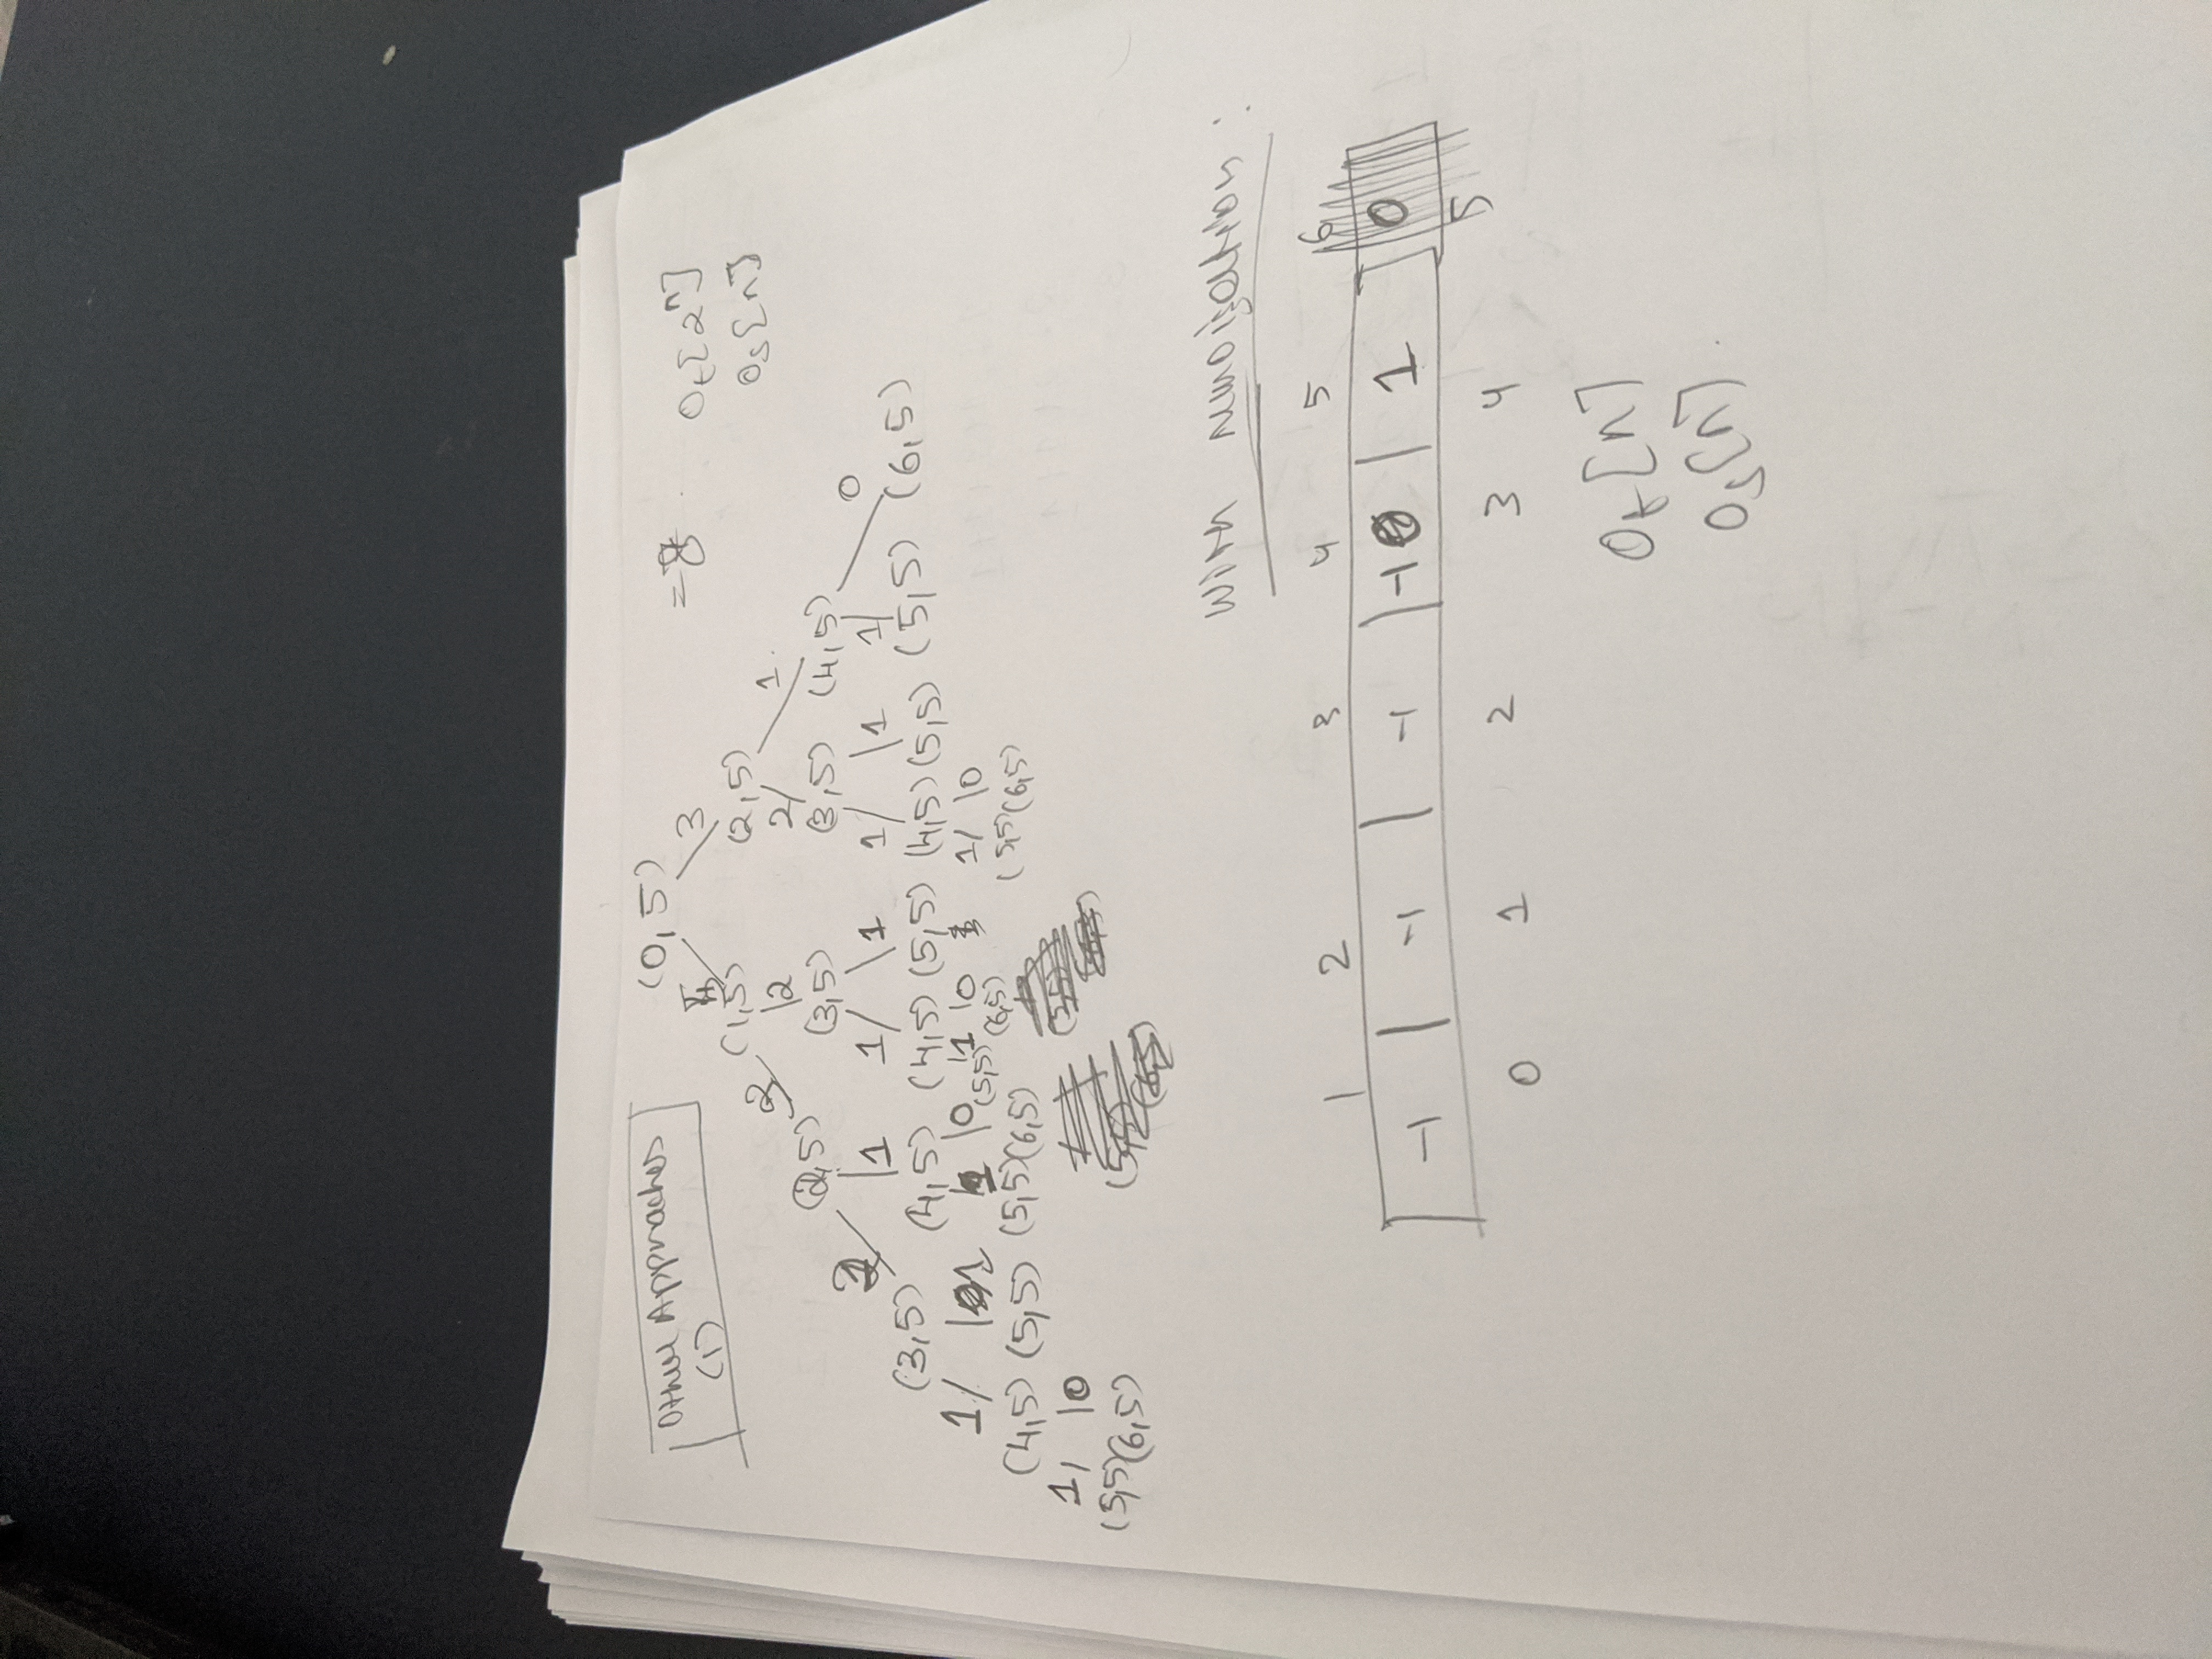 Other Approaches
(1)
(0,5)
3
= 8
Ot[2^n]
Os[n]
(1,5) (2,5)
2 2 2 1
(2,5) (3,5) (3,5) (4,5)
1 1 1 1 1 1 0
(3,5) (4,5) (4,5) (5,5) (4,5) (5,5) (5,5) (6,5)
1 1 1 0 1 0 1 0
(4,5) (5,5) (5,5) (6,5) (5,5) (6,5) (5,5) (6,5)
1 0
(5,5) (6,5)
With memoisation :
1 2 3 4 5 6
-1 -1 -1 -1 1 0
0 1 2 3 4 5
Ot[n]
Os[n]